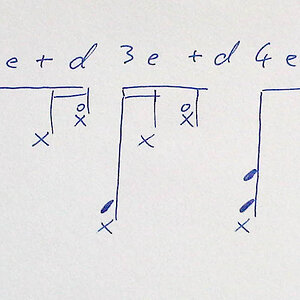 e + d 3 e + d 4 e